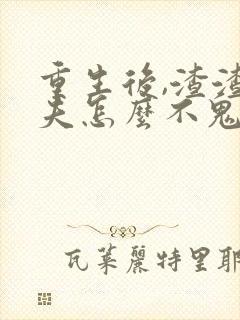 重生後,渣渣
夫怎麼不鬼
瓦萊麗特里耶